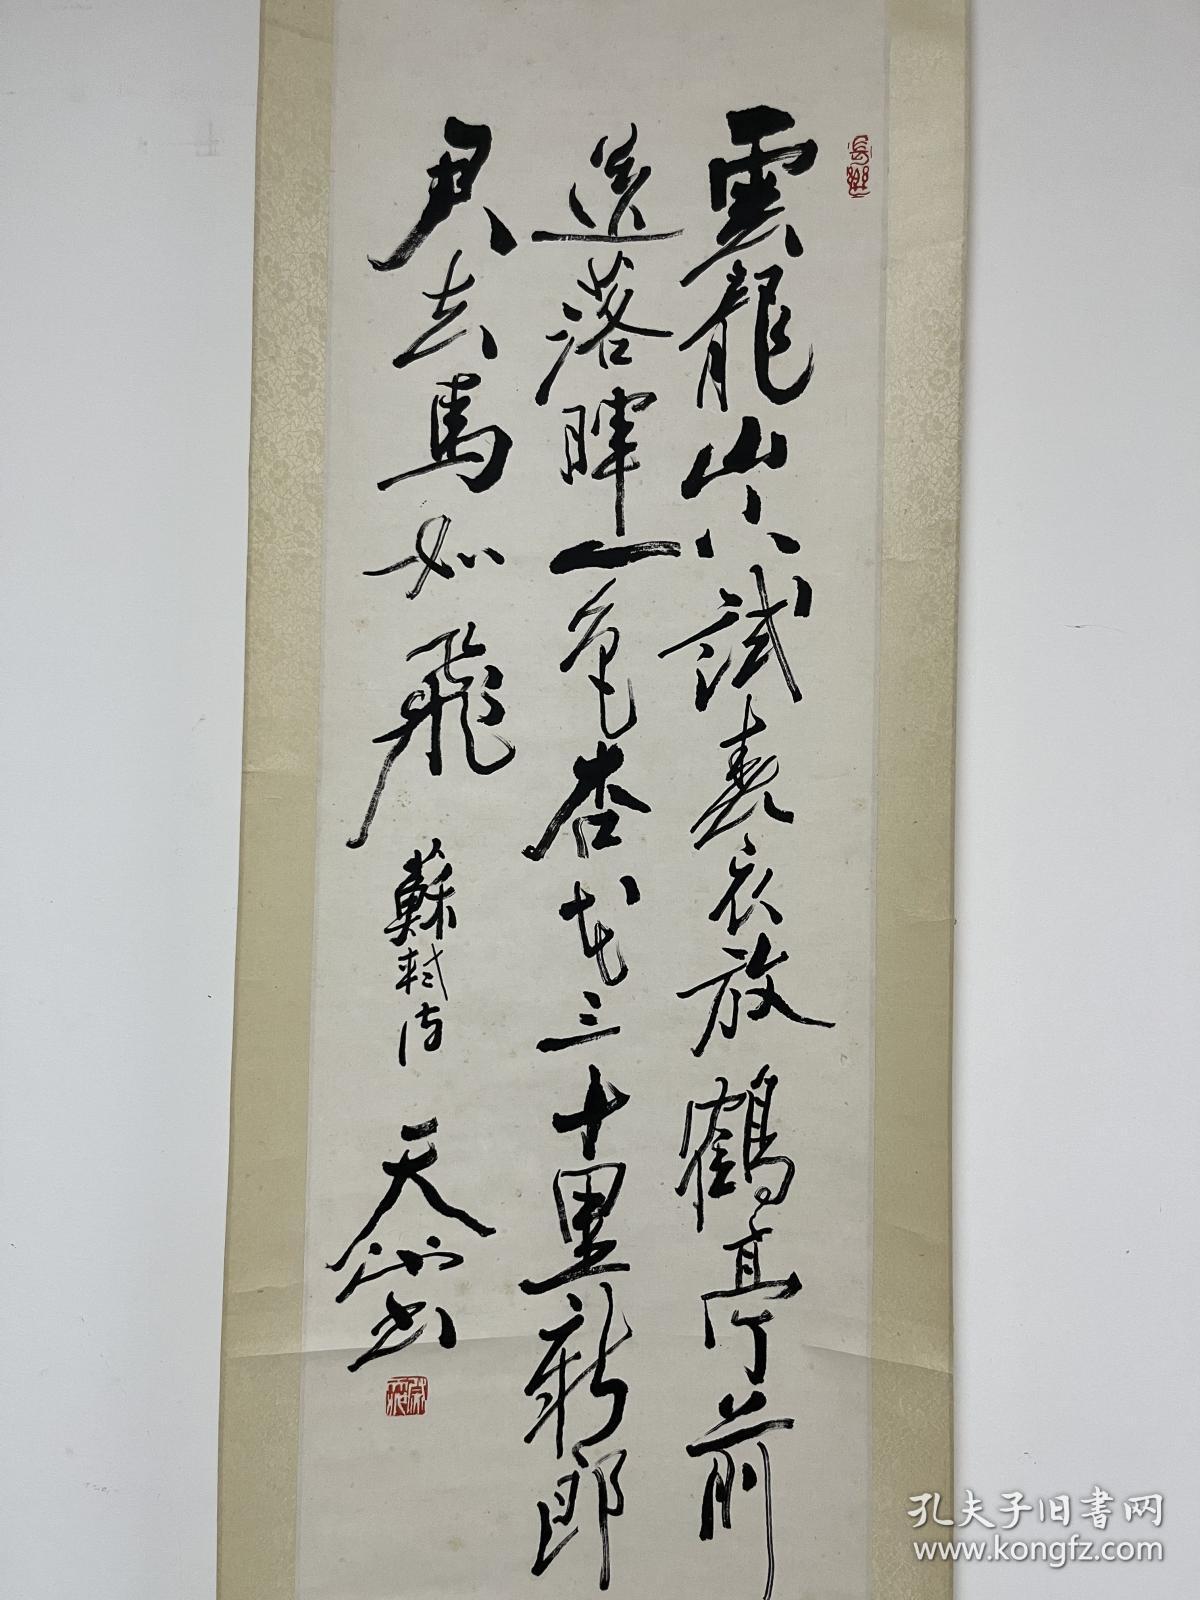 雲龍山下試春衣放鶴亭前
送落暉一色杏花三十里新郎
君去馬如飛
蘇軾詩 天池書
孔夫子旧书网
www.kongfz.com